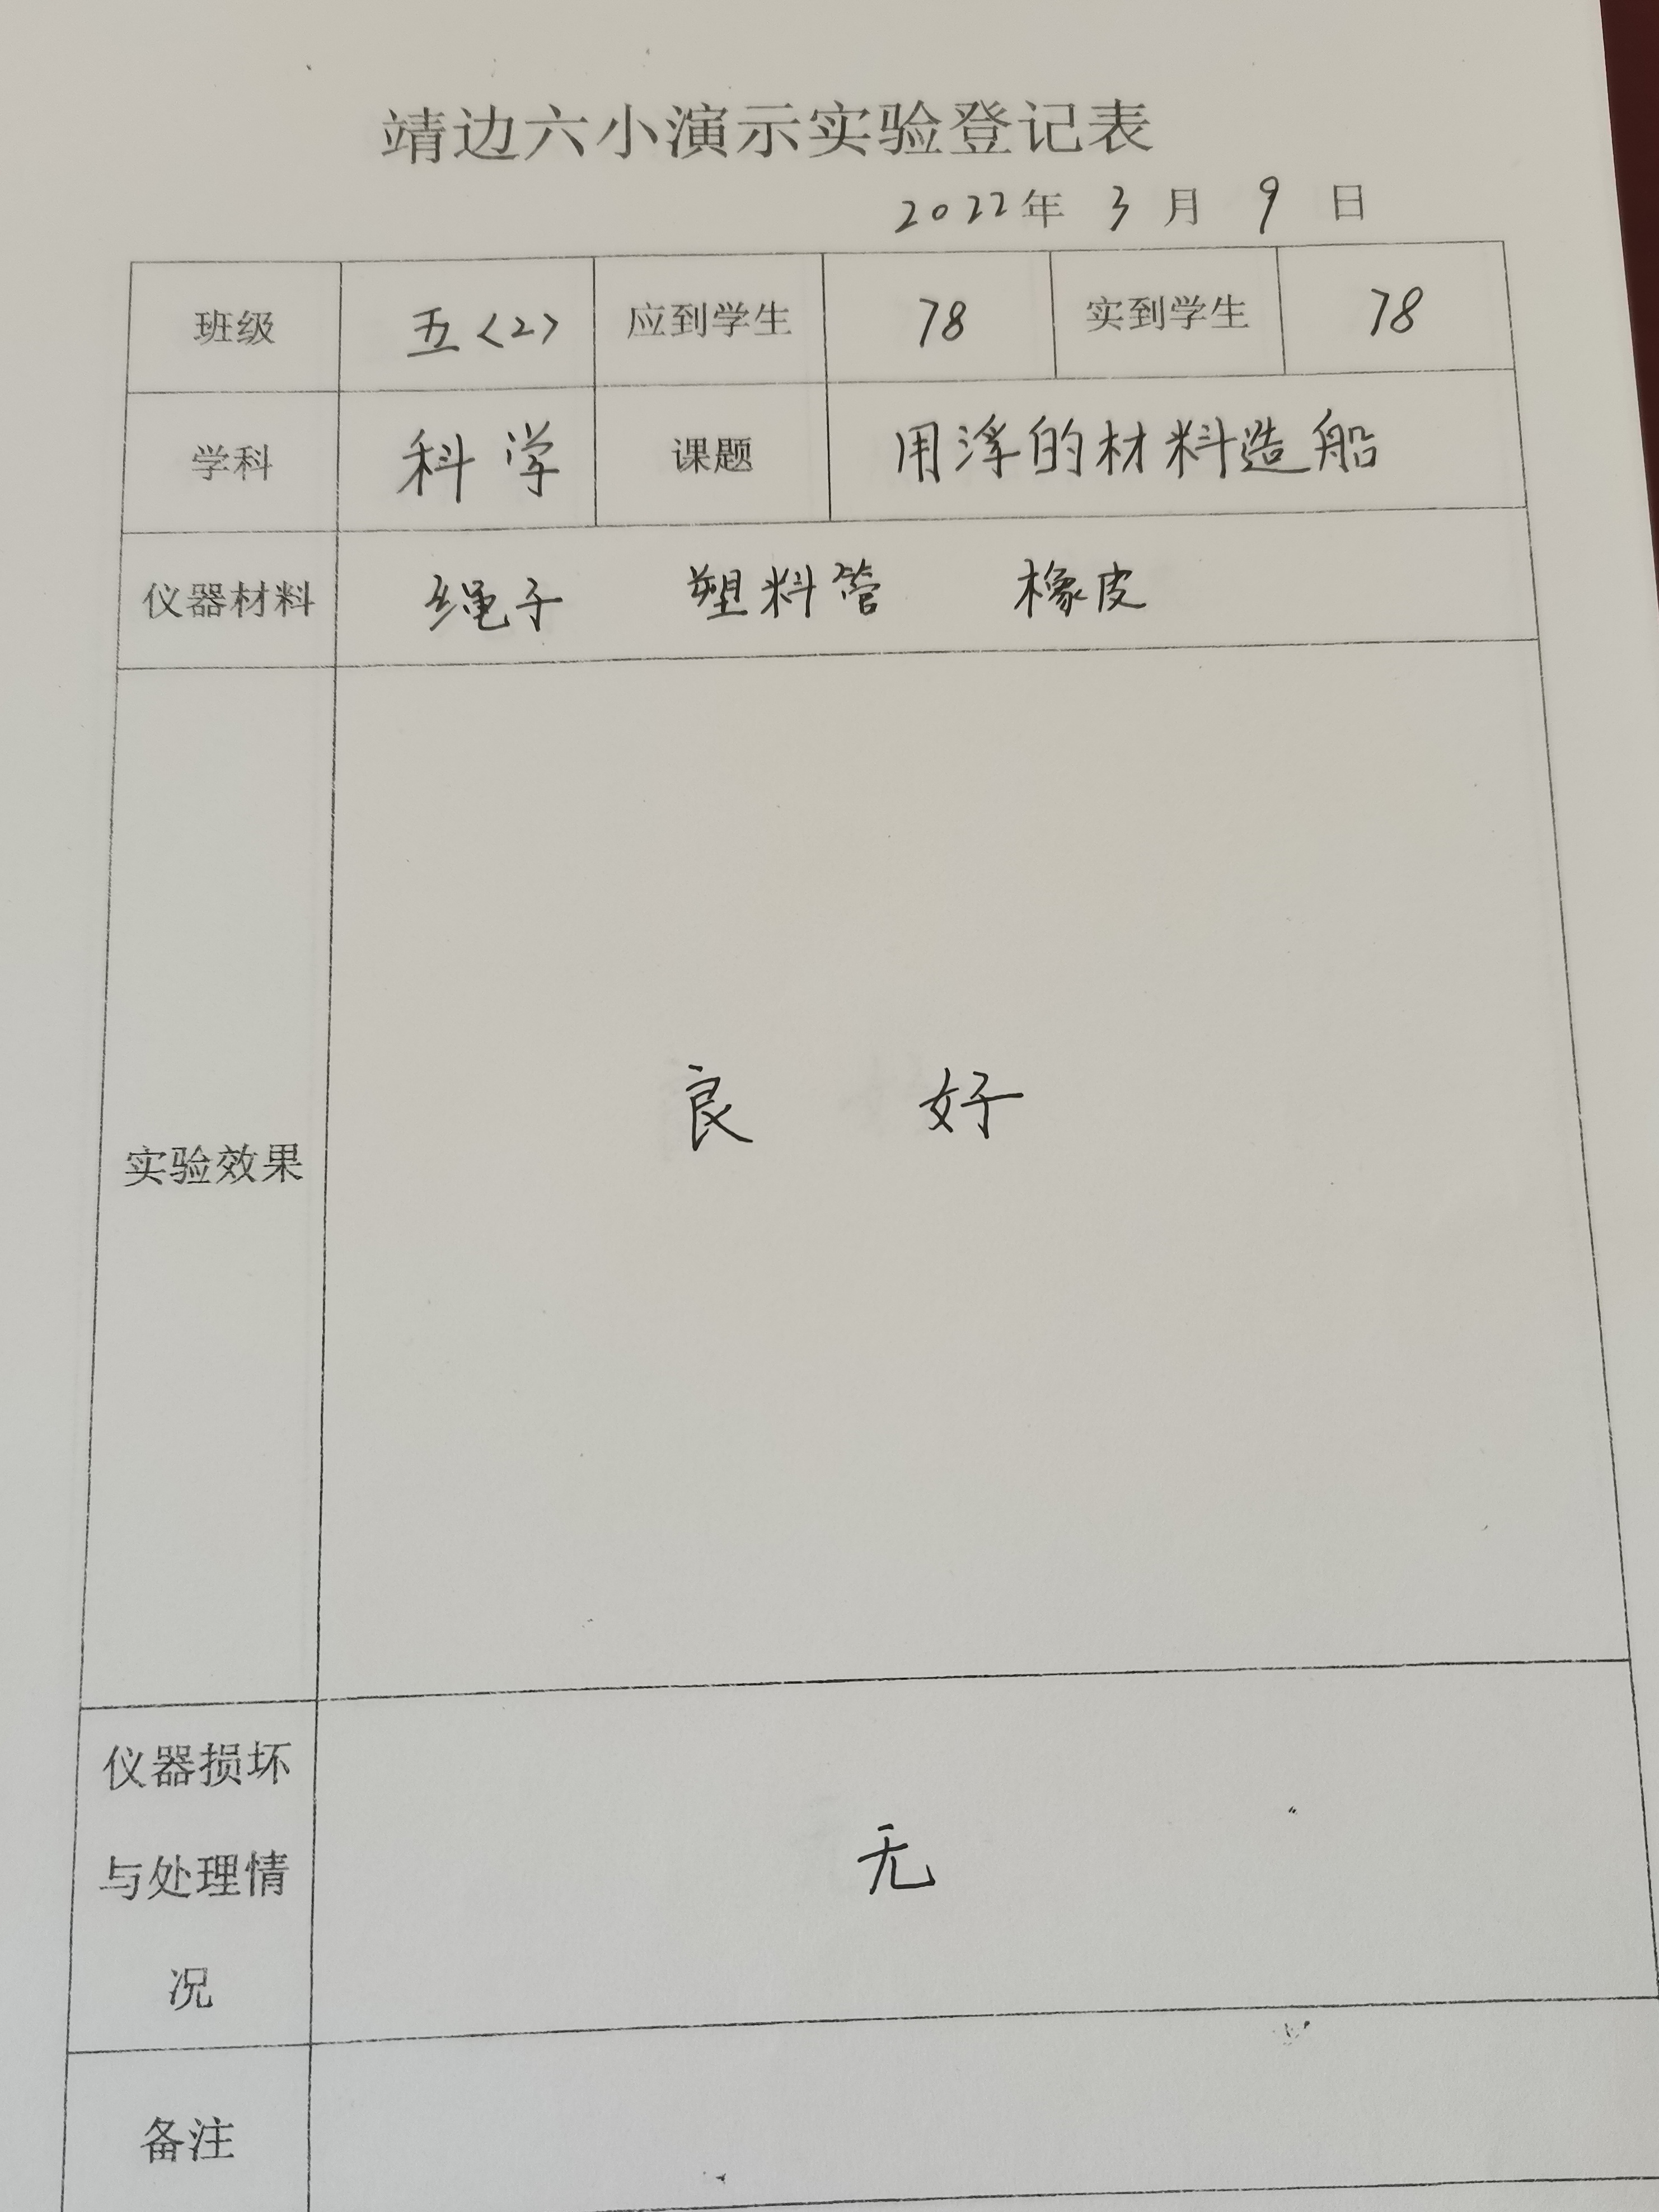 靖边六小演示实验登记表
2022年 3 月 9 日
班级 五<2> 应到学生 78 实到学生 78
学科 科学 课题 用浮的材料造船
仪器材料 绳子 塑料管 橡皮
实验效果 良 好
仪器损坏
与处理情 无
况
备注